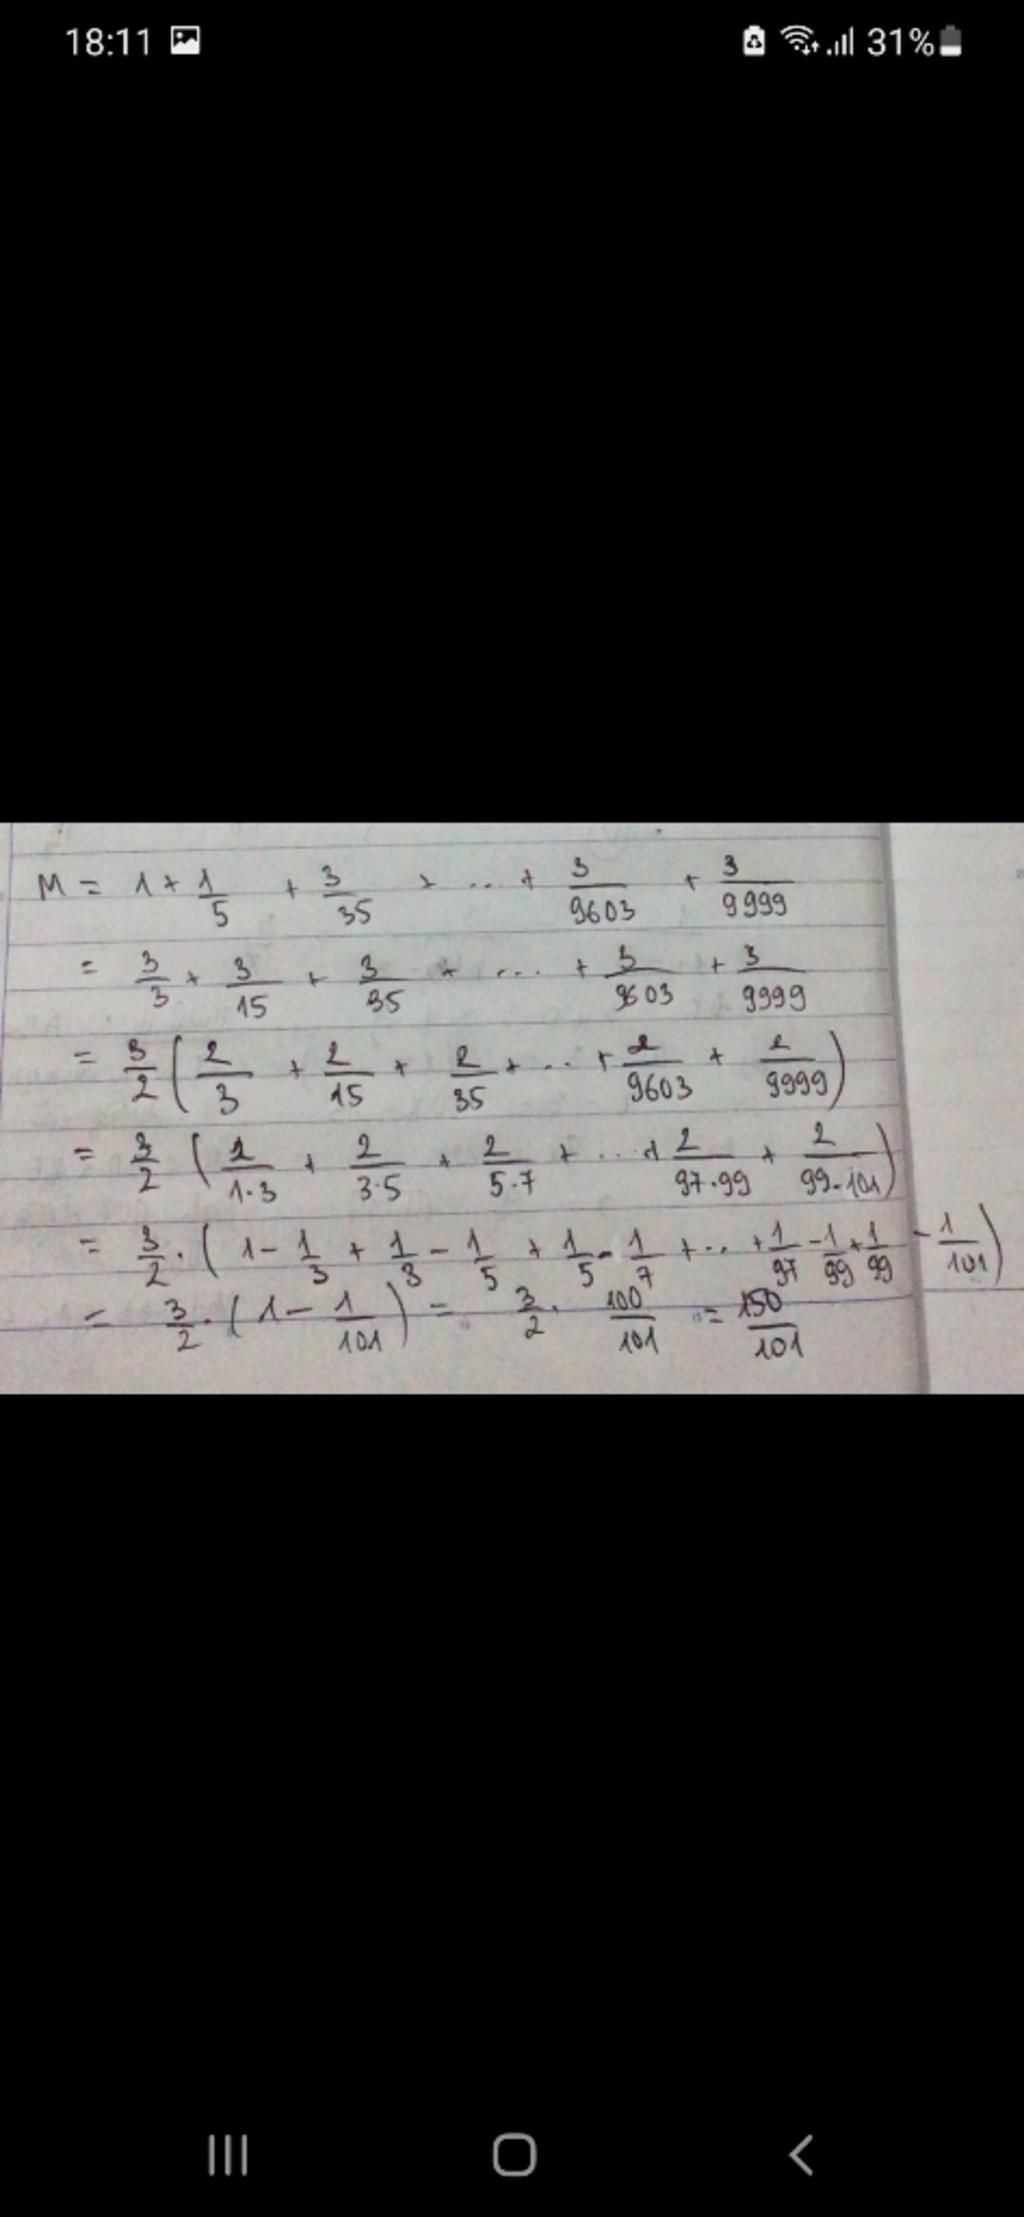 18:11 31%
M = 1 + 1/5 + 3/35 + ... + 3/9603 + 3/9999
= 3/3 + 3/15 + 3/35 + ... + 3/9603 + 3/9999
= 3/2 ( 2/3 + 2/15 + 2/35 + ... + 2/9603 + 2/9999 )
= 3/2 ( 2/1·3 + 2/3·5 + 2/5·7 + ... + 2/97·99 + 2/99·101 )
= 3/2 · ( 1 - 1/3 + 1/3 - 1/5 + 1/5 - 1/7 + ... + 1/97 - 1/99 + 1/99 - 1/101 )
= 3/2 · ( 1 - 1/101 ) = 3/2 · 100/101 = 150/101